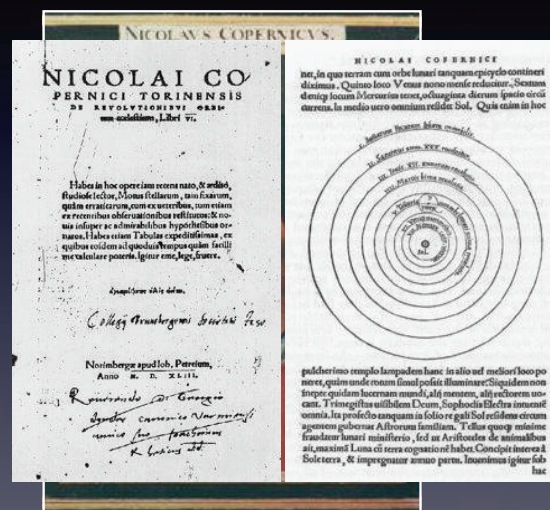 NICOLAVS COPERNICVS.
NICOLAI CO
PERNICI TORINENSIS
DE REVOLVTIONIBVS ORBI-
um cœlestium, Libri VI.
Habes in hoc opere iam recens nato, & ædito,
studiose lector, Motus stellarum, tam fixarum,
quàm erraticarum, cum ex ueteribus, tum etiam
ex recentibus obseruationibus restitutos: & no-
uis insuper ac admirabilibus hypothesibus or-
natos. Habes etiam Tabulas expeditissimas, ex
quibus eosdem ad quoduis tempus quàm facilli
me calculare poteris. Igitur eme, lege, fruere.
Collegij Brunsbergensis Societatis
Norimbergæ apud Ioh. Petreium,
Anno M. D. XLIII.
NICOLAI COPERNICI
net, in quo terram cum orbe lunari tanquam epicyclo contineri
diximus. Quinto loco Venus nono mense reducitur. Sextum
deniq; locum Mercurius tenet, octuaginta dierum spacio circũ
currens. In medio uero omnium residet Sol. Quis enim in hoc
I. Stellarum fixarum sphæra immobilis.
II. Saturnus anno XXX. reuoluitur.
III. Iouis XII. annorum reuolutio.
IIII. Martis bima reuolutio.
Sol.
pulcherimo templo lampadem hanc in alio uel meliori loco po
neret, quàm unde totum simul possit illuminare? Siquidem non
inepte quidam lucernam mundi, alij mentem, alij rectorem uo-
cant. Trimegistus uisibilem Deum, Sophoclis Electra intuentẽ
omnia. Ita profecto tanquam in solio re gali Sol residens circum
agentem gubernat Astrorum familiam. Tellus quoq; minime
fraudatur lunari ministerio, sed ut Aristoteles de animalibus
ait, maximã Luna cũ terra cognationẽ habet. Concipit interea à
Sole terra, & impregnatur annuo partu. Inuenimus igitur sub
hac